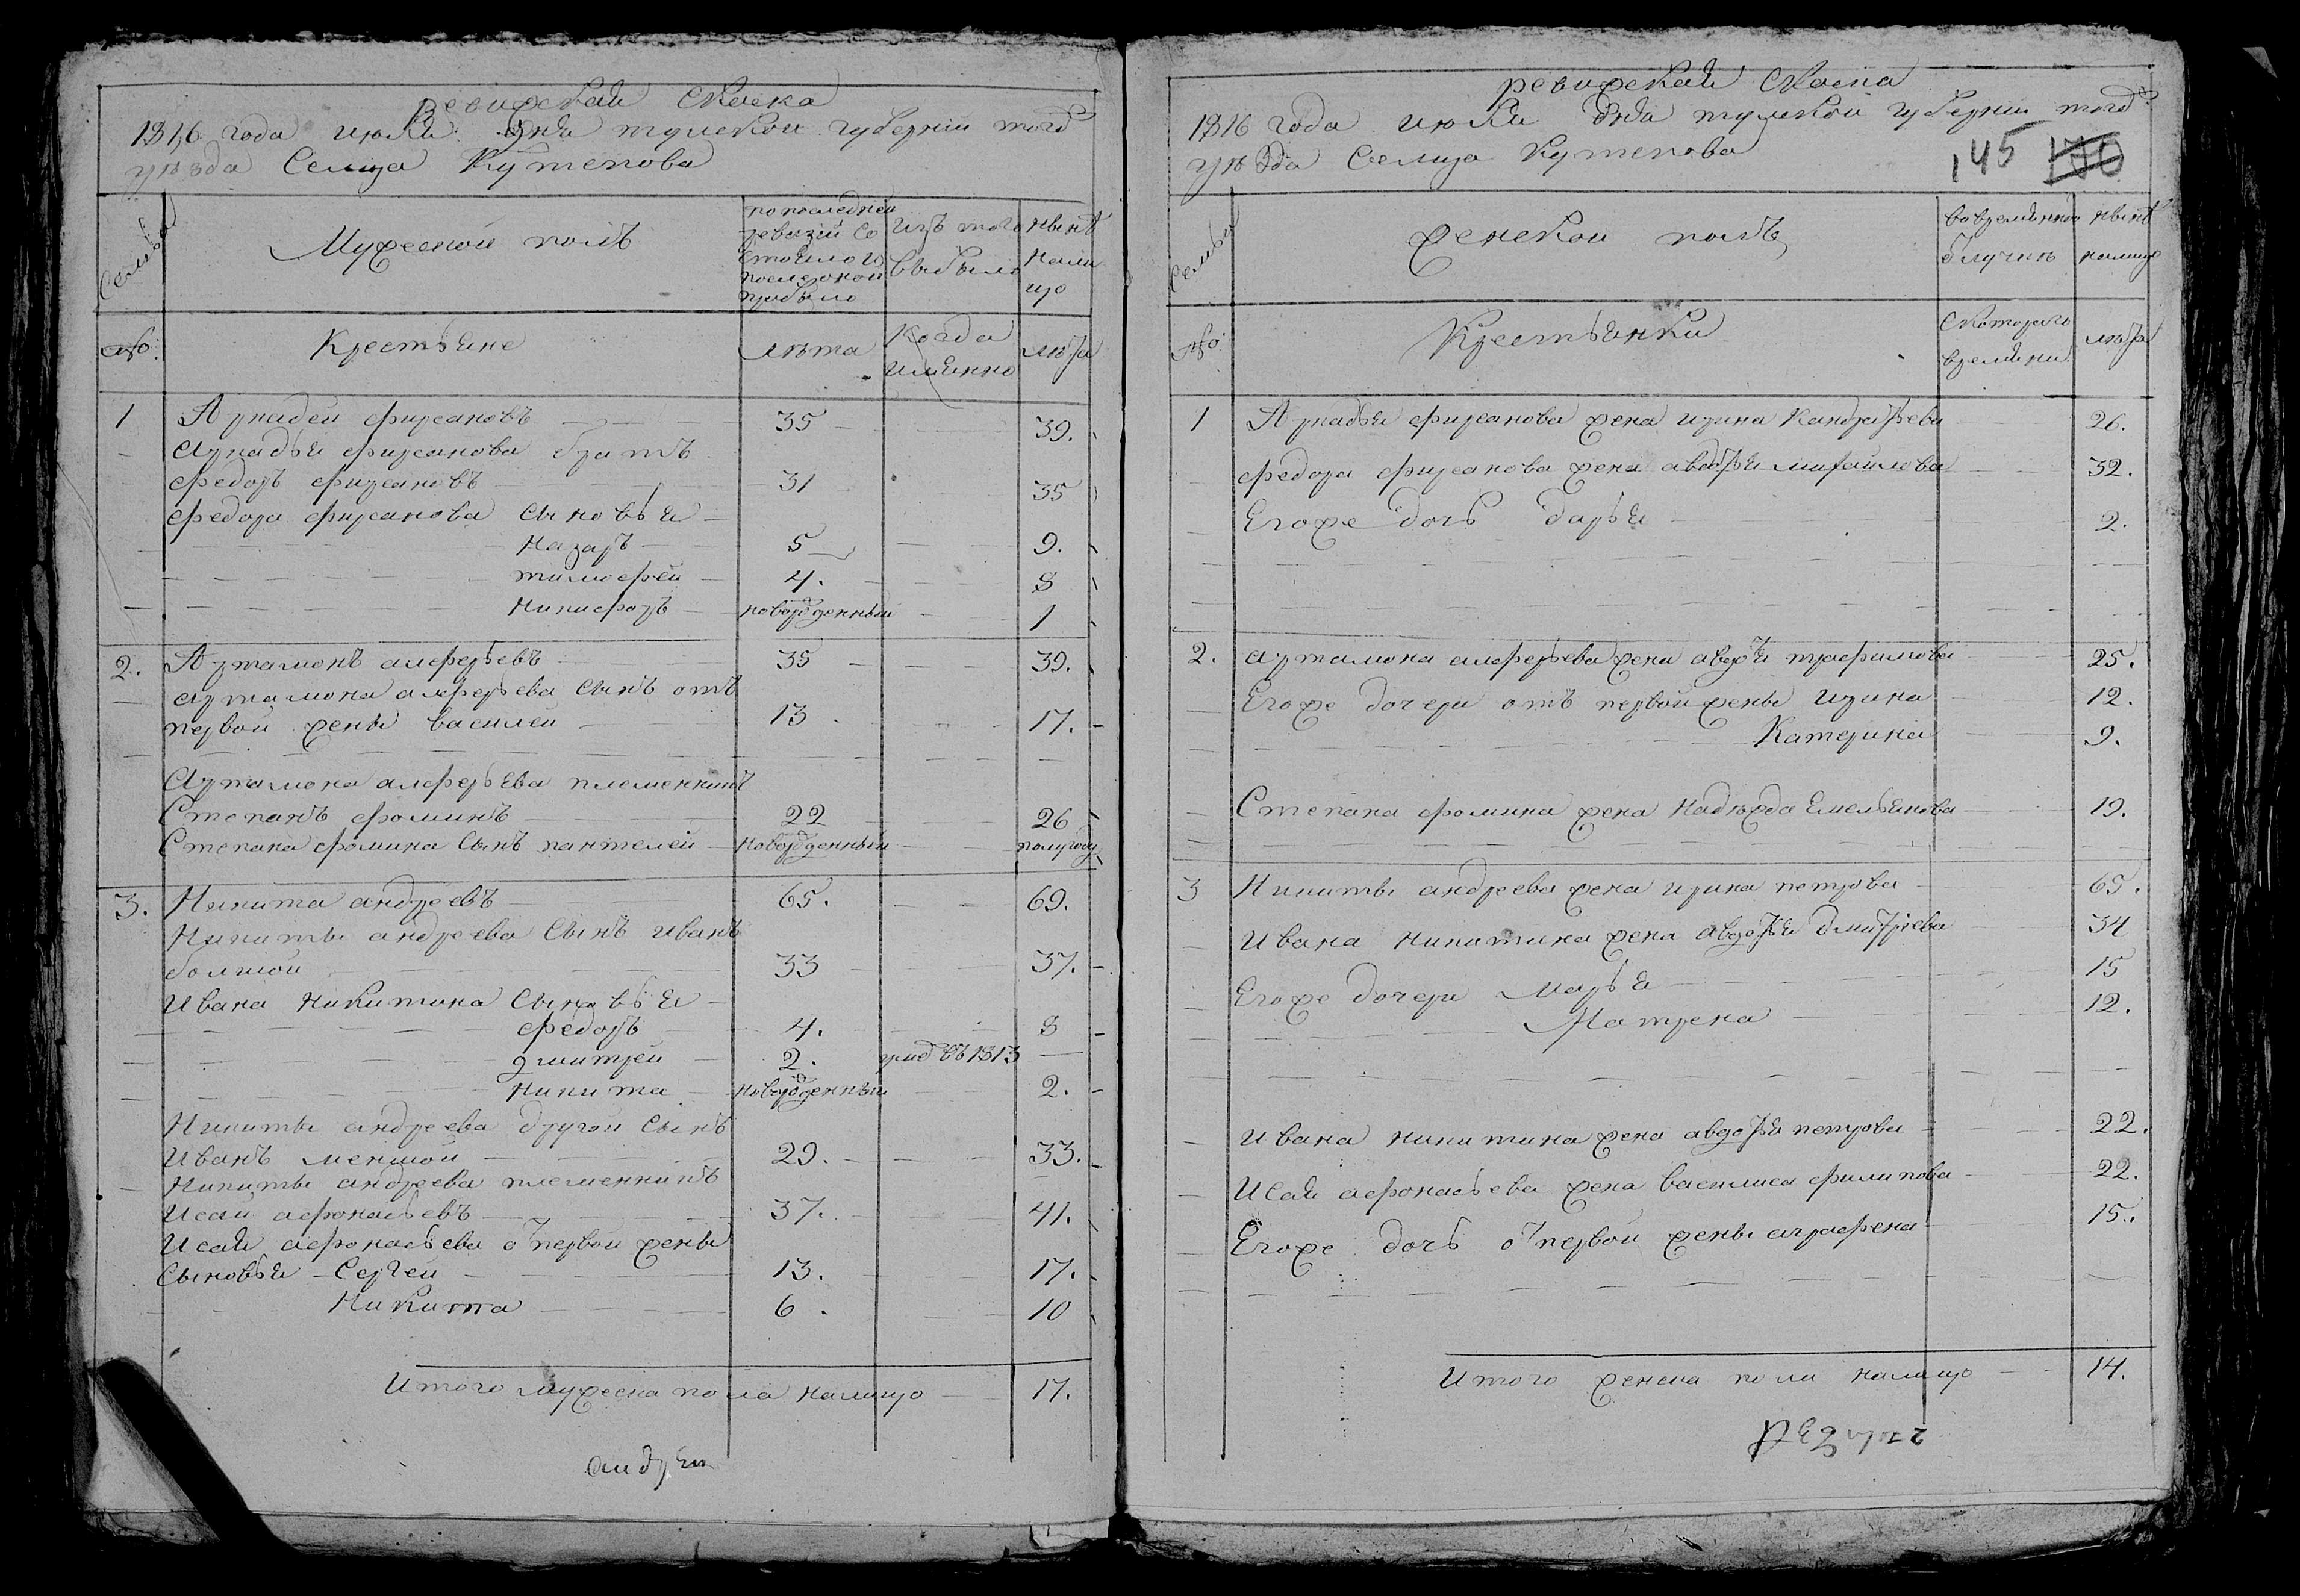 ревижская скаска
1816 года июля дня тулской губернии тогож
уезда Селца Кутепова
Семьи
Мужеской полъ
по последней
ревизіи Со
стояло и
после оной
прибыло
изъ того
выбыло
ныне
нали
цо
№:
Крестьяне
лета
Когда
имянно
лета
1 Аркадей фирсановъ 35 39.
Аркадья фирсанова братъ
федоръ фирсановъ 31 35
федора фирсанова Сыновья
Назаръ 5 9.
тимофей 4. 8
Никифоръ новорожденный 1
2. Артамонъ алферьевъ 35 39.
артамона алферьева Сынъ отъ
первой жены василей 13 17.
Артамона алферьева племенникъ
Степанъ фоминъ 22 26
Степана фомина Сынъ пантелей новорожденный полугоду
3. Никита андреевъ 65. 69.
Никиты андреева Сынъ иванъ
болшой 33 37.
ивана Никитина Сыновья
федоръ 4. 8
дмитрей 2. умеръ въ 1813
Никита новорожденный 2.
Никиты андреева другой Сынъ
иванъ меншой 29. 33.
Никиты андреева племенникъ
Исай афонасьевъ 37. 41.
Исая афонасьева от первой жены
Сыновья Сергей 13. 17.
Никита 6. 10
Итого мужеска пола налицо 17.
андрей
ревижская скаска
1816 года июля дня тулской губернии тогож
уезда Селца Кутепова
145 170
Семьи
женской полъ
во временной
отлучке
ныне
налицо
№:
Крестьянки
Скоторого
времяни
лета
1 Аркадья фирсанова жена ирина Кандратьева 26.
федора фирсанова жена авдотья михайлова 32.
Егоже дочь дарья 2.
2. артамона алферьева жена авдотья трафимова 25.
Егоже дочери отъ первой жены ирина 12.
Катерина 9.
Степана фомина жена Надежда Емельянова 19.
3 Никиты андреева жена ирина петрова 65.
ивана никитина жена авдотья дмитріева 34
Егоже дочери Марья 15
Матрена 12.
ивана никитина жена авдотья петрова 22.
Исая афонасьева жена василиса филипова 22.
Егоже дочь от первой жены аграфена 15.
Итого женска пола налицо 14.